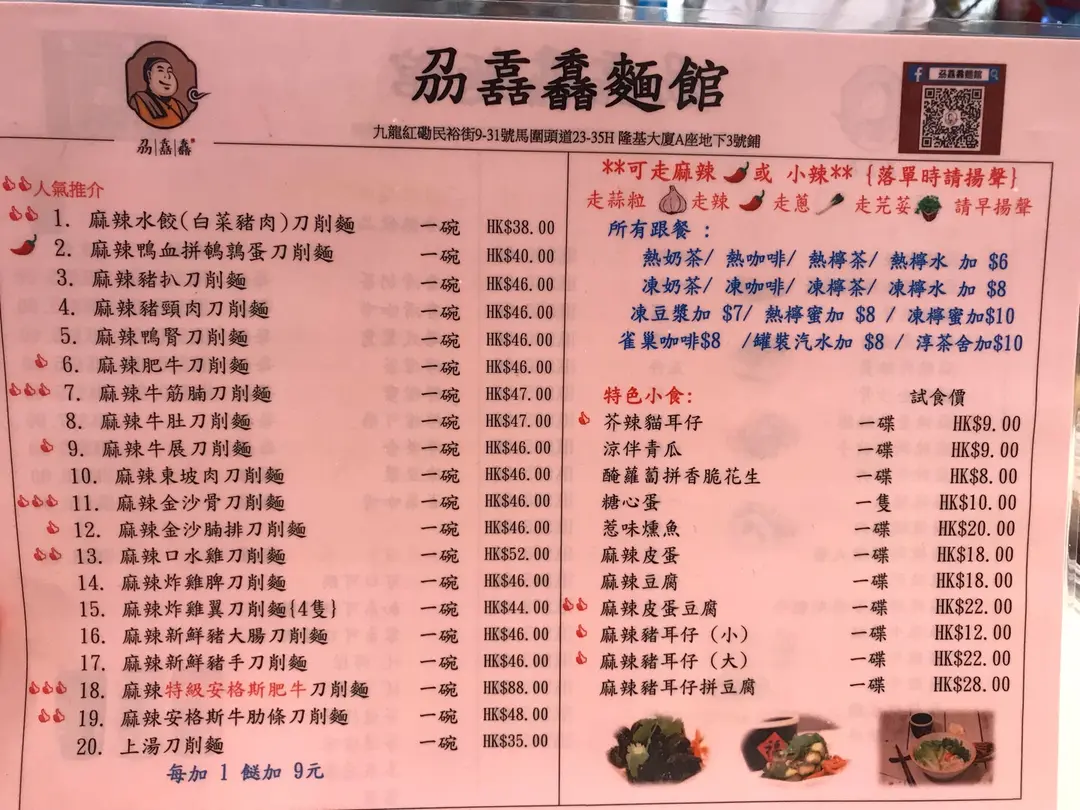 刕壵馫麵館
九龍紅磡民裕街9-31號馬圍頭道23-35H 隆基大廈A座地下3號鋪
人氣推介
1. 麻辣水餃(白菜豬肉)刀削麵 一碗 HK$38.00
2. 麻辣鴨血拼鵪鶉蛋刀削麵 一碗 HK$40.00
3. 麻辣豬扒刀削麵 一碗 HK$46.00
4. 麻辣豬頸肉刀削麵 一碗 HK$46.00
5. 麻辣鴨腎刀削麵 一碗 HK$46.00
6. 麻辣肥牛刀削麵 一碗 HK$46.00
7. 麻辣牛筋腩刀削麵 一碗 HK$47.00
8. 麻辣牛肚刀削麵 一碗 HK$47.00
9. 麻辣牛展刀削麵 一碗 HK$46.00
10. 麻辣東坡肉刀削麵 一碗 HK$46.00
11. 麻辣金沙骨刀削麵 一碗 HK$46.00
12. 麻辣金沙腩排刀削麵 一碗 HK$46.00
13. 麻辣口水雞刀削麵 一碗 HK$52.00
14. 麻辣炸雞脾刀削麵 一碗 HK$46.00
15. 麻辣炸雞翼刀削麵{4隻} 一碗 HK$44.00
16. 麻辣新鮮豬大腸刀削麵 一碗 HK$46.00
17. 麻辣新鮮豬手刀削麵 一碗 HK$46.00
18. 麻辣特級安格斯肥牛刀削麵 一碗 HK$88.00
19. 麻辣安格斯牛肋條刀削麵 一碗 HK$48.00
20. 上湯刀削麵 一碗 HK$35.00
每加 1 餸加 9元
**可走麻辣 或 小辣** {落單時請揚聲}
走蒜粒 走辣 走蔥 走芫荽 請早揚聲
所有跟餐 :
熱奶茶/ 熱咖啡/ 熱檸茶/ 熱檸水 加 $6
凍奶茶/ 凍咖啡/ 凍檸茶/ 凍檸水 加 $8
凍豆漿加 $7/ 熱檸蜜加 $8 / 凍檸蜜加$10
雀巢咖啡$8 /罐裝汽水加 $8 / 淳茶舍加$10
特色小食: 試食價
芥辣貓耳仔 一碟 HK$9.00
涼伴青瓜 一碟 HK$9.00
醃蘿蔔拼香脆花生 一碟 HK$8.00
糖心蛋 一隻 HK$10.00
惹味燻魚 一碟 HK$20.00
麻辣皮蛋 一碟 HK$18.00
麻辣豆腐 一碟 HK$18.00
麻辣皮蛋豆腐 一碟 HK$22.00
麻辣豬耳仔（小） 一碟 HK$12.00
麻辣豬耳仔（大） 一碟 HK$22.00
麻辣豬耳仔拼豆腐 一碟 HK$28.00